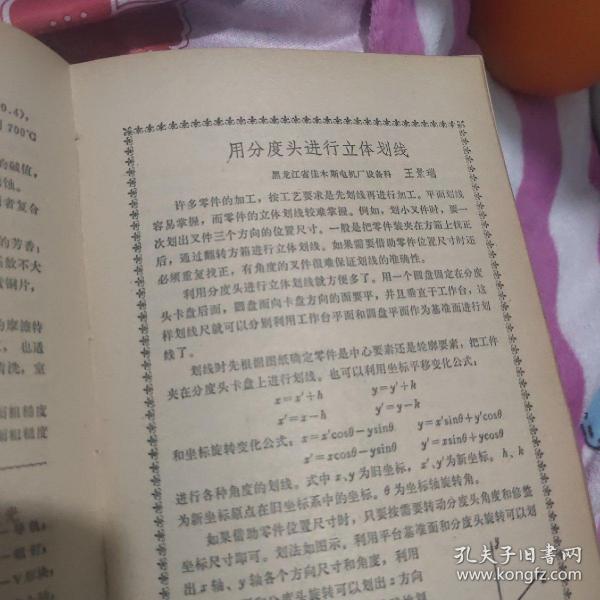 0.4),
700℃
的碱值,
蚀。
者复合
的芳香;
系数不大
铜片,
的摩擦特
也通
清洗, 室
粗糙度
粗糙度
用分度头进行立体划线
黑龙江省佳木斯电机厂设备科 王景瑞
许多零件的加工, 按工艺要求是先划线再进行加工。平面划线
容易掌握, 而零件的立体划线较难掌握。例如, 划小叉件时, 要一
次划出叉件三个方向的位置尺寸。一般是把零件装夹在方箱上找正
后, 通过翻转方箱进行立体划线。如果需要借助零件位置尺寸时还
必须重复找正, 有角度的叉件很难保证划线的准确性。
利用分度头进行立体划线就方便多了。用一个圆盘固定在分度
头卡盘后面, 圆盘面向卡盘方向的面要平, 并且垂直于工作台, 这
样划线尺就可以分别利用工作台平面和圆盘平面作为基准面进行划
线了。
划线时先根据图纸确定零件是中心要素还是轮廓要素, 把工件
夹在分度头卡盘上进行划线。也可以利用坐标平移变化公式:
x=x′+h y=y′+k
x′=x-h y′=y-k
和坐标旋转变化公式: x=x′cosθ-ysinθ y=x′sinθ+y′cosθ
x′=xcosθ-ysinθ y′=xsinθ+ycosθ
进行各种角度的划线。式中 x、y 为旧坐标, x′、y′为新坐标。h、k
为新坐标原点在旧坐标系中的坐标。θ 为坐标轴旋转角。
如果借助零件位置尺寸时, 只要按需要转动分度头角度和修整
坐标尺寸即可。划法如图示, 利用平台基准面和分度头旋转可以划
出 x 轴、y 轴各个方向尺寸和角度, 利用
和分度头旋转可以划出 z 方向
y
孔夫子旧书网
www.kongfz.com